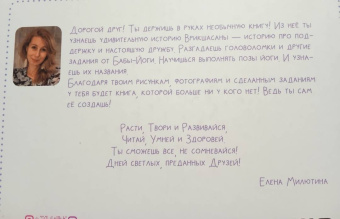 Дорогой друг! Ты держишь в руках необычную книгу! Из неё ты
узнаешь удивительную историю Врикшасаны — историю про под-
держку и настоящую дружбу. Разгадаешь головоломки и другие
задания от Бабы-Йоги. Научишься выполнять позы йоги. И узна-
ешь их названия.
Благодаря твоим рисункам, фотографиям и сделанным заданиям
у тебя будет книга, которой больше ни у кого нет! Ведь ты сам
её создашь!
Расти, Твори и Развивайся,
Читай, Умней и Здоровей.
Ты сможешь все, не сомневайся!
Дней светлых, преданных Друзей!
Елена Милютина